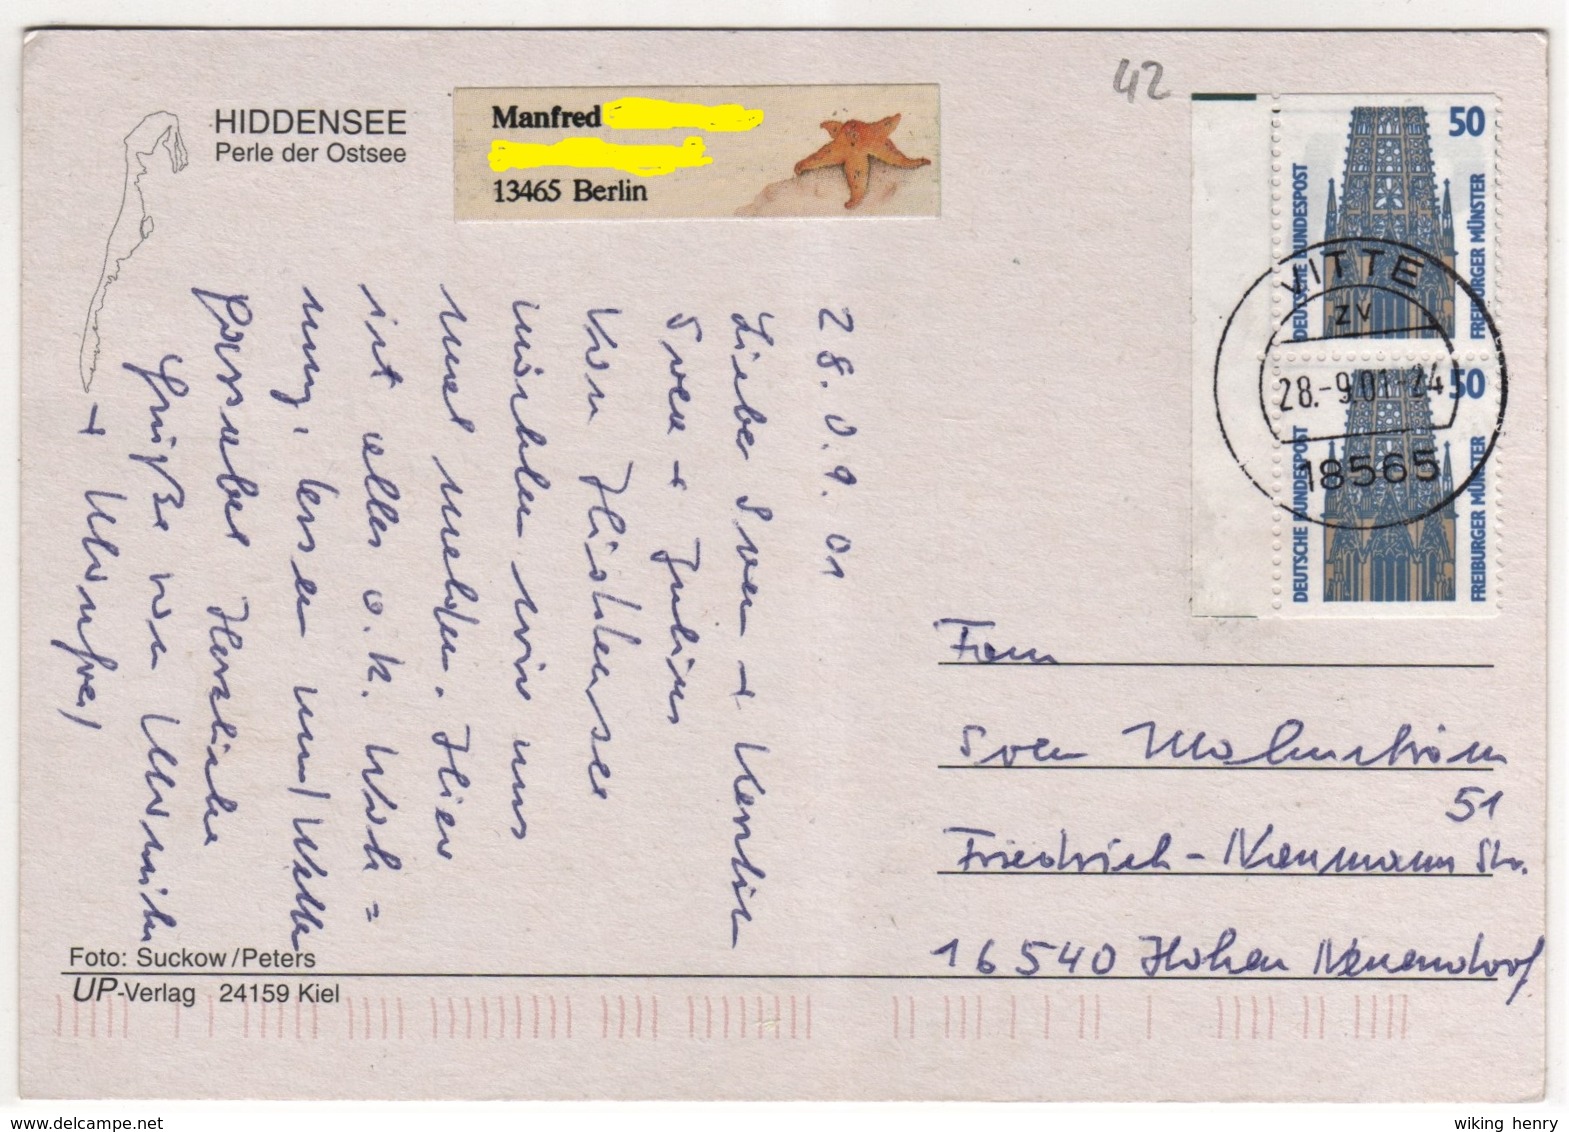 42
HIDDENSEE
Perle der Ostsee
Manfred
13465 Berlin
50
DEUTSCHE BUNDESPOST
FREIBURGER MÜNSTER
50
DEUTSCHE BUNDESPOST
FREIBURGER MÜNSTER
VITTE
ZV
28.-9.01-24
18565
28.0.9.01
Lieber Sven + Kerstin
Sven + Julius
Von Hiddensee
möchten wir uns
mal melden. Hier
ist alles o.k. Woh=
nung, Essen und Wetter
passabel Herzliche
Grüße von
+ Manfred
Fam
Sven Malmström
51
Friedrich-Naumann Str.
16540 Hohen Neuendorf
Foto: Suckow/Peters
UP-Verlag 24159 Kiel
www.delcampe.net
wiking henry